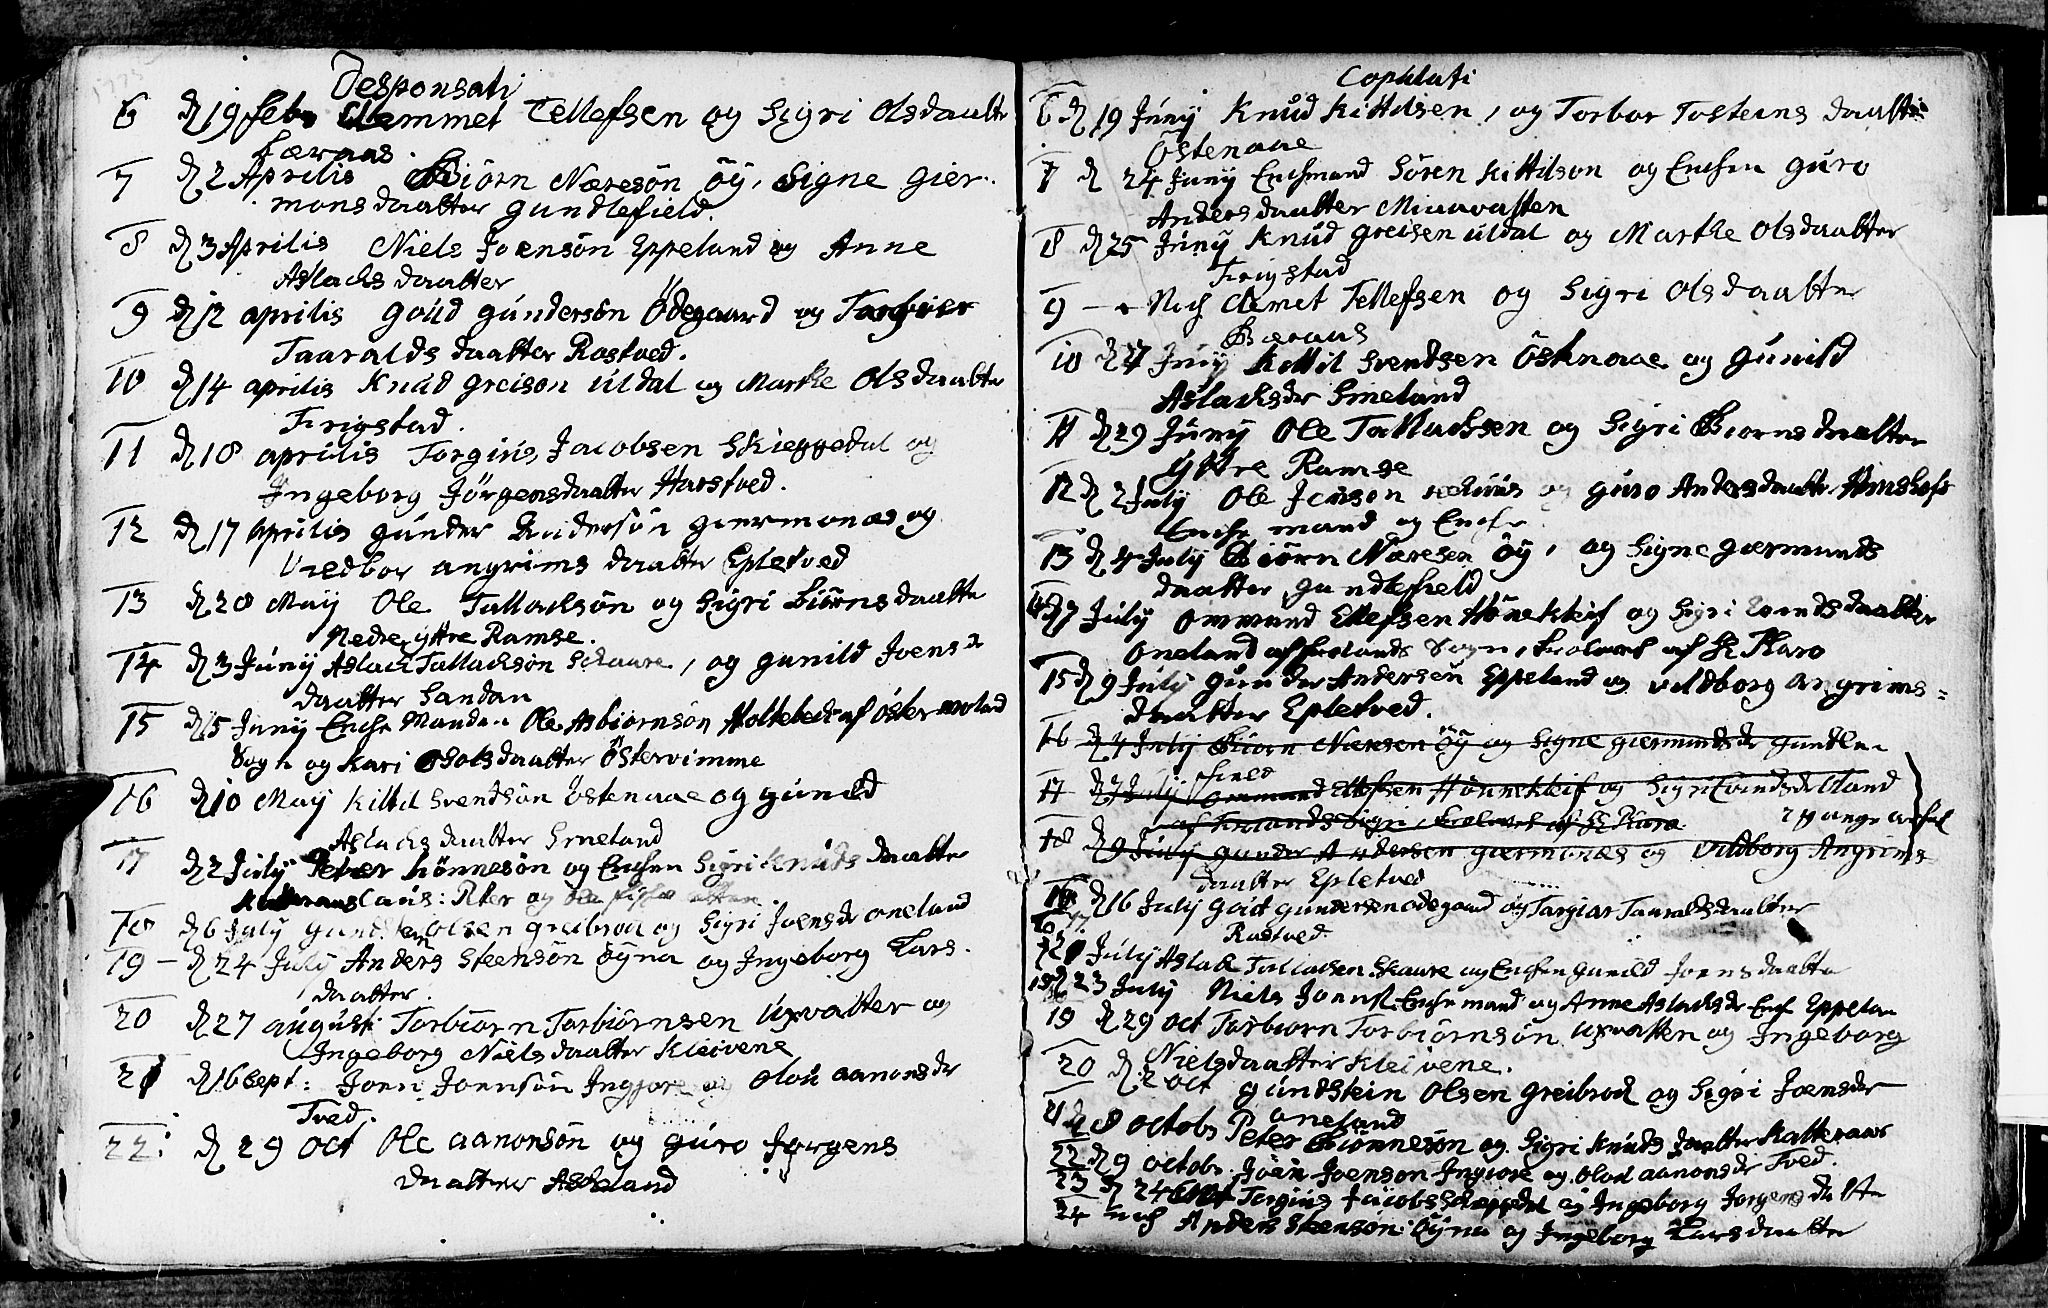 Desponsati
6 d 19 Feb Clemmet Tellefsen og Sigri Olsdaatter
Færaas.
7 d 2 Aprilis Biörn Næresön Öÿ, Signe Gier-
monsdaatter Gundlefield.
8 d 3 Aprilis Niels Joensön Eppeland og Anne
Aslachsdaatter
9 d 12 aprilis Goüd Gündersön Ödegaard og Targier
Taaraldsdaatter Rostved.
10 d 14 aprilis Knüd Greison Uldal og Marthe Olsdaatter
Frigstad.
11 d 18 aprilis Torgius Jacobsen Skieggedal og
Ingeborg Jörgensdaatter Harstved.
12 d 17 aprilis Gunder Andersön Giermonæs og
Vredbor angrimsdaatter Epletved
13 d 28 Maÿ Ole Tallachsön og Sigri Biörnsdaatter
Nedre yttre Ramse.
14 d 3 Junÿ Aslach Tallachsön Schaare, og Gunild Joens
daatter Sandan
15 d 5 Junÿ Enchemanden Ole Asbiornsön Holtebech af Östermoland
Sogn og Kari Osolsdaatter Östervimme
16 d 10 Maÿ Kittil Svendsön Östenaae og Gunild
Aslachsdaatter Smeland
17 d 2 July Peter Lönnesön og Enchen Sigri Knudsdaatter
Peter og
18 d 6 July Gundsten Olsen Greibrod og Sigri Joensdr Oneland
19 – d 24 July Anders Steensön Öyna og Ingeborg Lars-
daatter.
20 d 27 august: Torbiorn Torbiörnsen Uxvatter og
Ingeborg Nielsdaatter Kleivene
21 d 16 Sept: Joen Joensön Ingjore og Olou Aanonsdr
Tved.
22: d 29 Oct Ole Aanonsön og Guro Jorgens
daatter Askeland
Copulati
6 d 19 Junÿ Knud Kittilsen, og Torbor Tosteinsdaatter
Östenaae
7 d 24 Junÿ Enchmand Sören Kittilson og Enchen Guro
Andersdaatter Miaavatten
8 d 25 Junÿ Knud Greisen Uldal og Marthe Olsdaatter
Frigstad
9 – Clemet Tellefsen og Sigri Olsdaatter
10 d 27 Junÿ Kittil Svendsen Östenaae og Gunild
Aslachsdr Smeland
11 d 29 Junÿ Ole Tallachsen og Sigri Biornsdaatter
Yttre Ramse
12 d 2 July Ole Jenson og Guro Andersdaatter
Enchemand og Enche
13 d 4 July Biörn Næresen Öÿ, og Signe Giermunds
daatter Gundlefield
14 d 7 July Ommund Ellefsen Hönekleif og Sigri Evindsdaatter
Oneland af Sogn,
15 d 9 July Gunder Andersön Eppeland og Vildborg Angrims=
daatter Epletved.
16 d 4 July Biorn Næresen Öÿ og Signe Giermundsdr Gundle-
field
17 d 7 July Ommund Ellefsen Hönnekleif og Sigri Evindsdr Oland
2 gange anført
18 d 9 July Gunder Andersen Giermonæs og Vildborg Angrims-
daatter Epletved
16 d 16 July Goud Gundersen Ödegaard og Targier Taaraldsdaatter
Rostved.
17 d 21 July Aslak Tallachsen Skaare og Enchen Gunild Joensdaatter
18 d 23 July Niels Joens Enchemand og Anne Aslachsdr Ench Eppeland
19 d 29 Oct Torbiorn Torbiörnsön Uxvatten og Ingeborg
Nielsdaatter Kleivene.
20 d 2 oct Gundstein Olsen Greibrod og Sigri Joensdr
Oneland
21 d 8 octobr Peter Lönnesön og Sigri Knudsdaatter Katteraas
22 d 9 octobr Joen Joenson Ingiore og Olou Aanonsdr Tved.
23 d 24 Oct Torgius Jacobs Skieggedal og Ingeborg Jorgensdatter
24 Anders Steensön Öyna og Ingeborg Larsdaatter